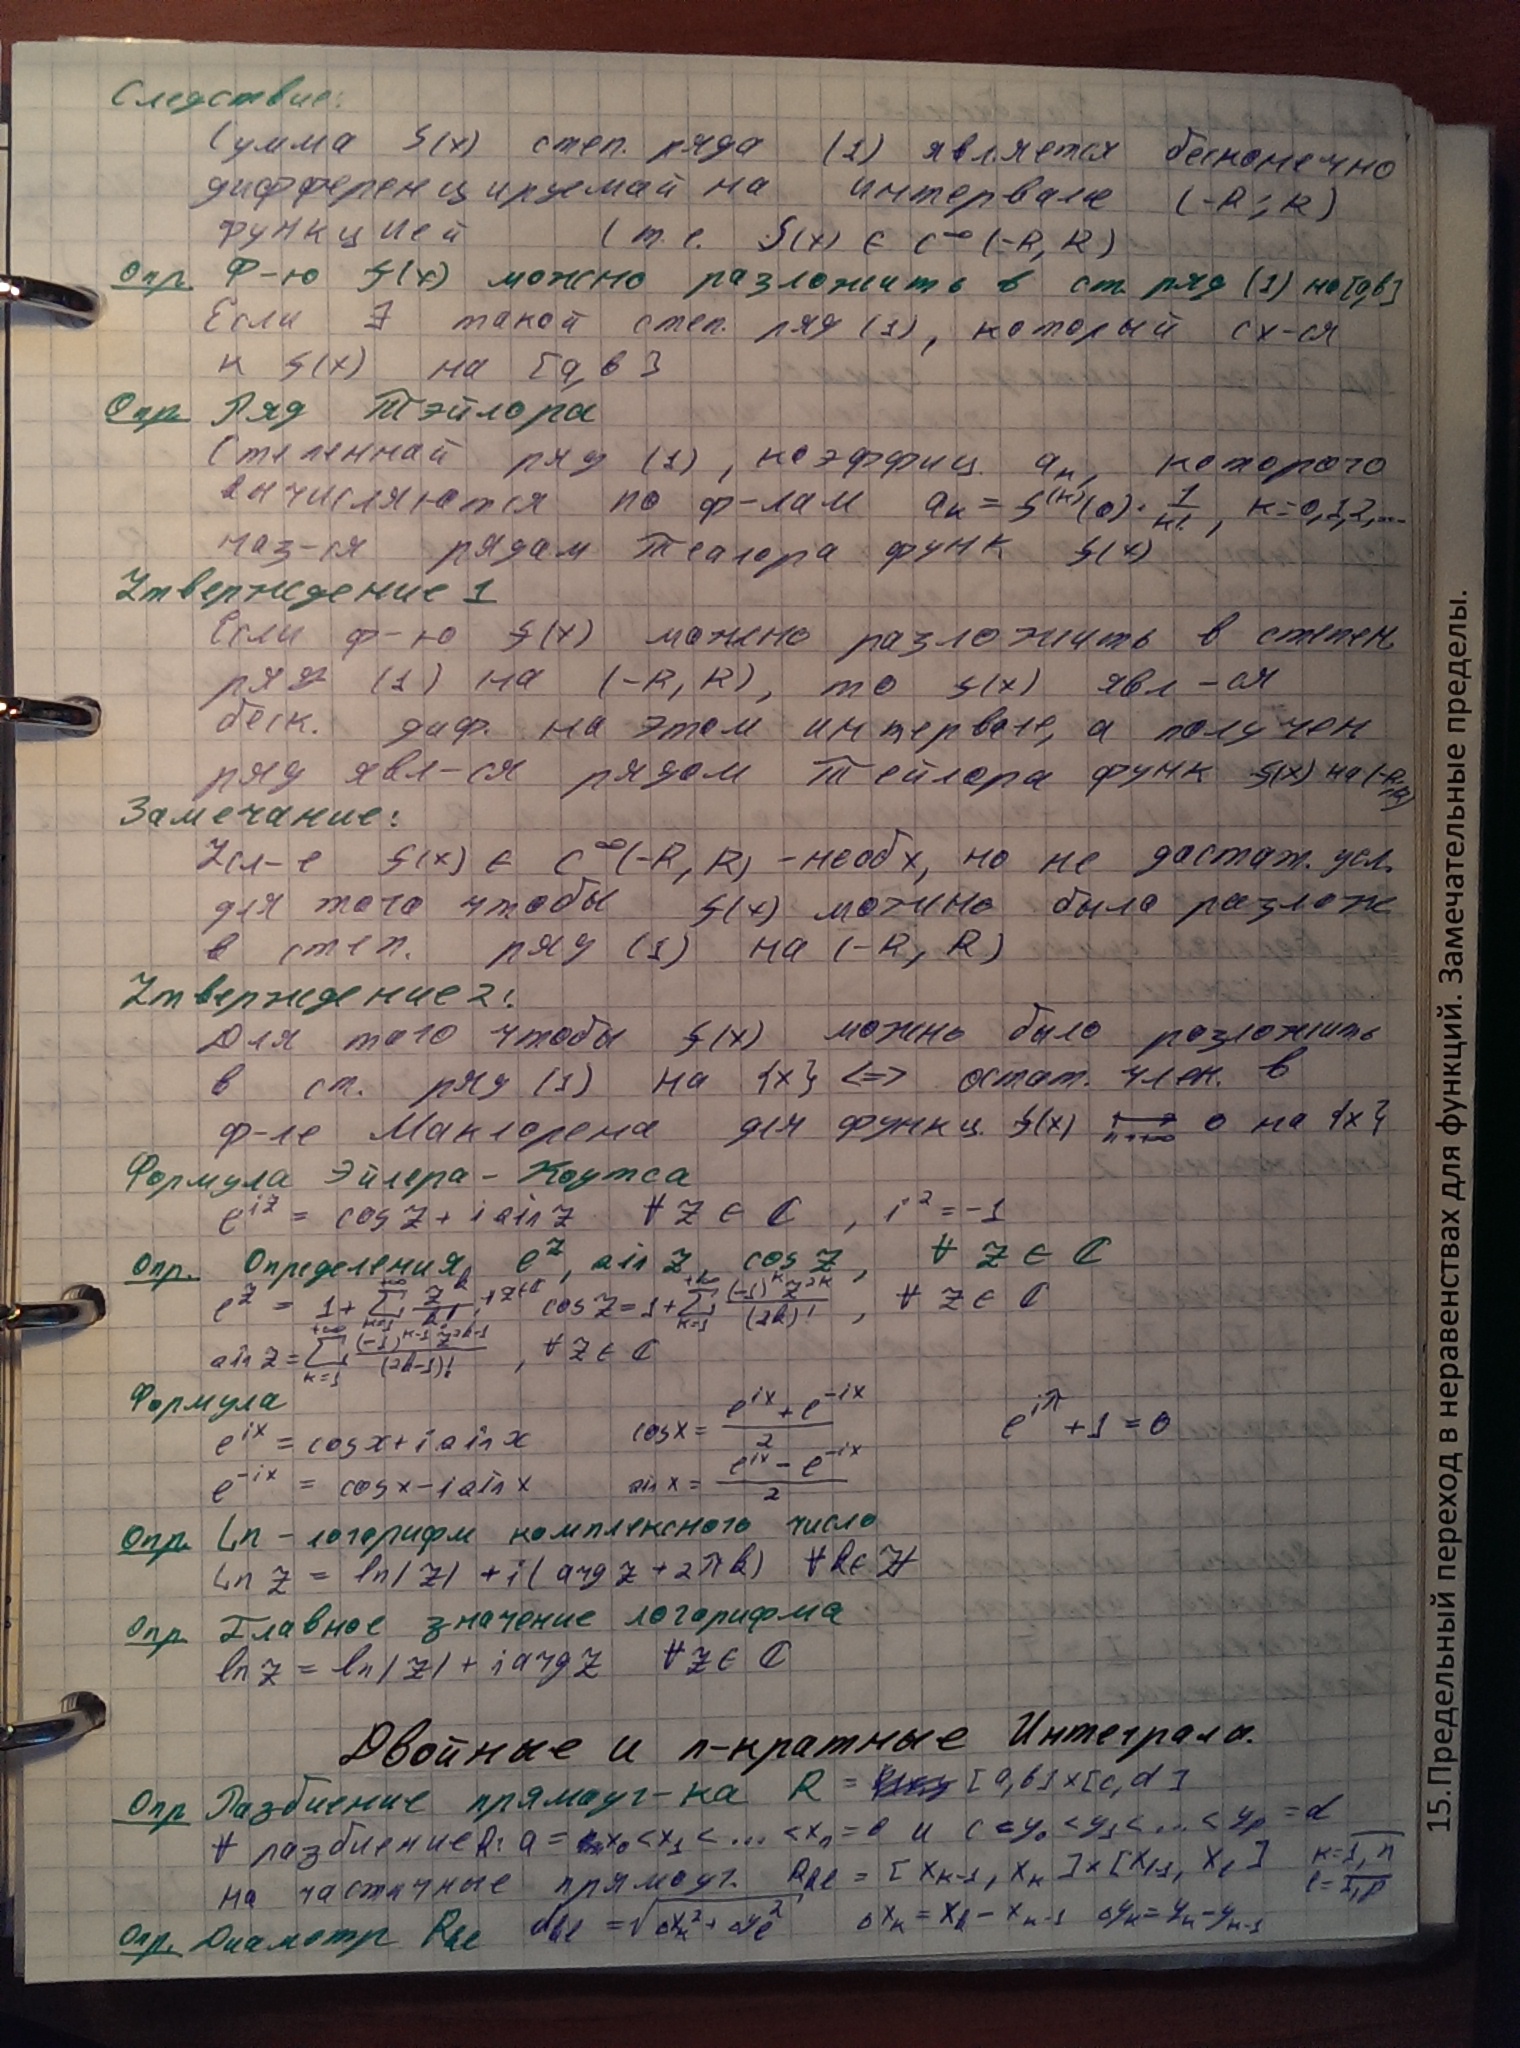 Следствие:
Сумма S(x) степ. ряда (1) является бесконечно
дифференцируемай на интервале (-R; R)
функцией (т.е. S(x) ∈ C^∞(-R, R)
Опр. Ф-ю f(x) можно разложить в ст. ряд (1) на [a,b]
Если ∃ такой степ. ряд (1), который сх-ся
к f(x) на [a,b]
Опр. Ряд Тэйлора
Степеннай ряд (1), коэффиц. aₖ, которого
вычисляются по ф-лам aₖ = f^(k)(0)·1/k!, k=0,1,2,...
наз-ся рядам функ f(x)
Утверждение 1
Если ф-ю f(x) можно разложить в степен
ряд (1) на (-R, R), то f(x) явл-ся
беск. диф. на этом интервале, а получен
ряд явл-ся рядом Тейлора функ f(x) на (-R, R)
Замечание:
Усл-е f(x) ∈ C^∞(-R, R) - необх, но не достат. усл.
для того чтобы f(x) можно было разлож
в степ. ряд (1) на (-R, R)
Утверждение 2:
Для того чтобы f(x) можно было разложить
в ст. ряд (1) на {x} <=> остат. член. в
ф-ле Маклорена для функц. f(x) ⇉ n→∞ 0 на {x}
Формула Эйлера - Коутса
e^{iz} = cos z + i sin z ∀ z ∈ ℂ, i² = -1
Опр. Определения e^z, sin z, cos z, ∀ z ∈ ℂ
e^z = 1+ ∑_{k=1}^{+∞} z^k/k!, ∀z∈ℂ cos z = 1+∑_{k=1}^{+∞} (-1)^k z^{2k}/(2k)!, ∀ z ∈ ℂ
sin z = ∑_{k=1}^{+∞} (-1)^{k-1} z^{2k-1}/(2k-1)!, ∀ z ∈ ℂ
Формула
e^{ix} = cos x + i sin x cos x = (e^{ix} + e^{-ix})/2 e^{iπ} + 1 = 0
e^{-ix} = cos x - i sin x sin x = (e^{ix} - e^{-ix})/2
Опр. Ln - логорифм комплексного число
Ln z = ln|z| + i(arg z + 2πk) ∀k∈ℤ
Опр Главное значение логорифма
ln z = ln|z| + i arg z ∀ z ∈ ℂ
Двойные и n-кратные Интеграла.
Опр Разбиение прямоуг-ка R = [a,b]×[c,d]
∀ разбиение R: a = x₀<x₁<...<xₙ=в и c=y₀<y₁<...<yₚ=d
на частичные прямоуг. Rₖₗ = [xₖ₋₁, xₖ]×[xₗ₋₁, xₗ] k=1,n l=1,p
Опр. Диаметр Rₖₗ dₖₗ = √(Δxₖ² + Δyₗ²) Δxₖ = xₖ - xₖ₋₁ Δyₖ = yₖ - yₖ₋₁
15.Предельный переход в неравенствах для функций. Замечательные пределы.